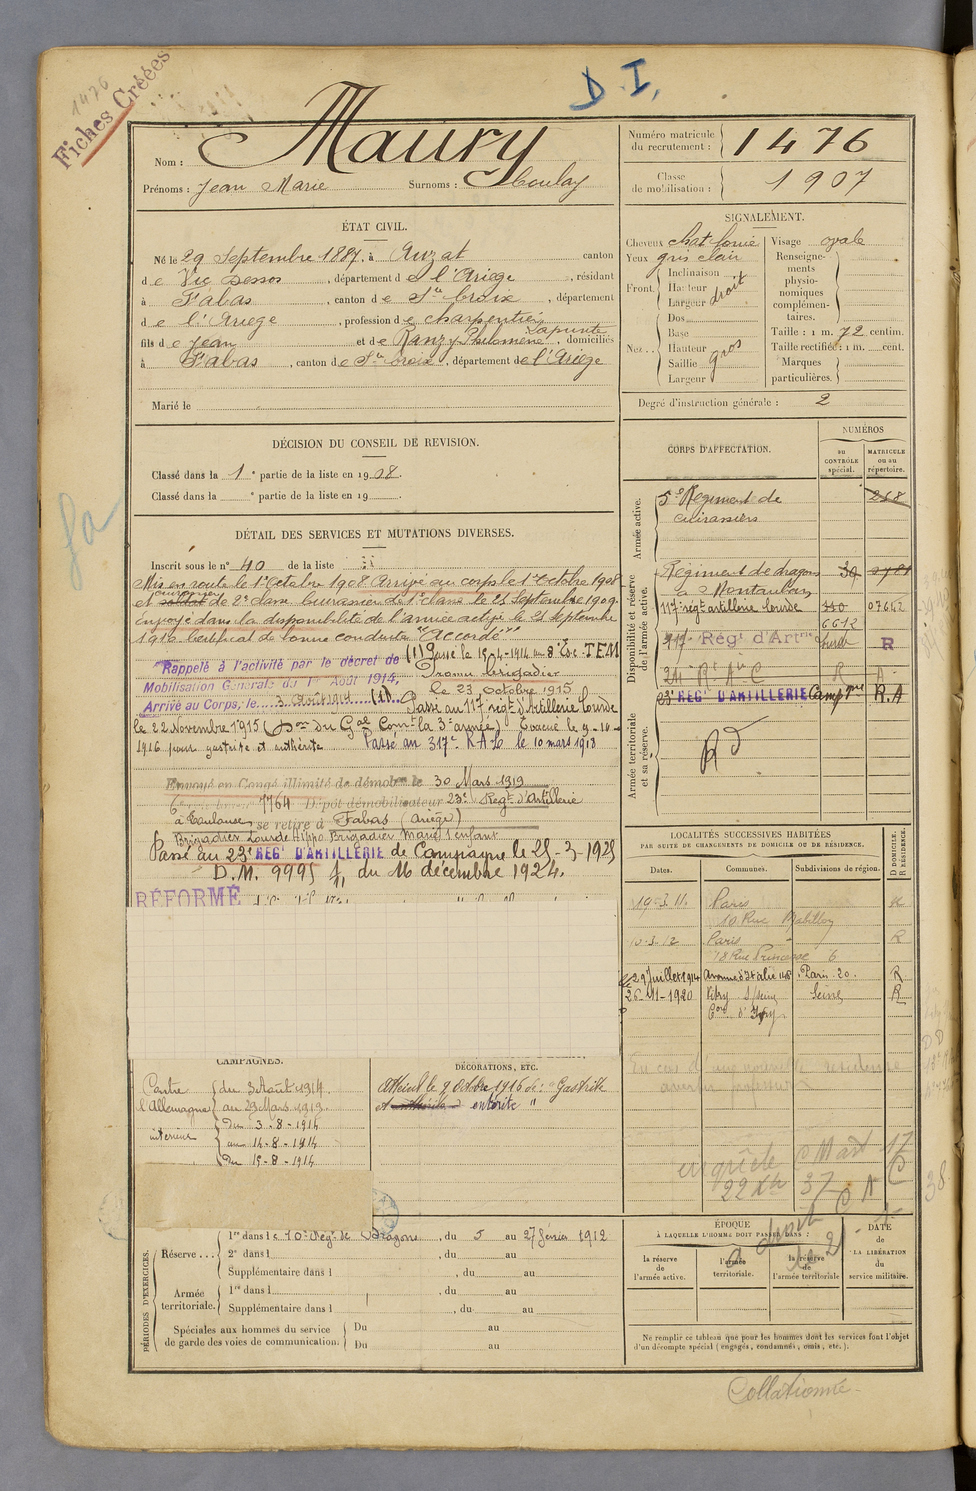 1476
Fiches Créées
D. I.
Nom : Maury
Prénoms : Jean Marie Surnoms : Soulay
Numéro matricule du recrutement : 1476
Classe de mobilisation : 1907
ÉTAT CIVIL.
Né le 29 Septembre 1887, à Auzat canton
de Vic Dessos, département de l'Ariège, résidant
à Fabas, canton de Ste Croix, département
de l'Ariège, profession de charpentier
fils de Jean et de Ranzy Philomène Lapunte, domiciliés
à Fabas, canton de Ste Croix, département de l'Ariège
Marié le
SIGNALEMENT.
Cheveux chat foncé
Yeux gris clair
Front. Inclinaison
Hauteur
Largeur droit
Nez.. Dos
Base
Hauteur
Saillie gros
Largeur
Visage ovale
Renseignements physionomiques complémentaires.
Taille : 1 m. 72 centim.
Taille rectifiée : 1 m. cent.
Marques particulières.
Degré d'instruction générale : 2
DÉCISION DU CONSEIL DE REVISION.
Classé dans la 1e partie de la liste en 1908.
Classé dans la e partie de la liste en 19 .
DÉTAIL DES SERVICES ET MUTATIONS DIVERSES.
Inscrit sous le n° 40 de la liste
Mis en route le 1er Octobre 1908. Arrivé au corps le 1er Octobre 1908
et soldat cuirassier de 2e classe. Cuirassier de 1e classe le 25 Septembre 1909.
Envoyé dans la disponibilité de l'armée active le 25 Septembre
1910. Certificat de bonne conduite "Accordé"
Rappelé à l'activité par le décret de
Mobilisation Générale du 1er Août 1914,
Arrivé au Corps, le 3 Août 1914 (1)
(1) Passé le 15-4-1914 au 8e Esc. T.E.M
Promu brigadier
le 23 octobre 1915
Passé au 117e régt d'Artillerie lourde
le 22 Novembre 1915 (Don du Gal Comt la 3e armée) Evacué le 9-10-
1916 pour gastrite et enthérite Passé au 317e R.A.L le 10 mars 1918
Envoyé en Congé illimité de démobon le 30 Mars 1919
7764 Dépôt démobilisateur 23e Regt d'Artillerie
à Toulouse, se retire à Fabas (Ariège)
Brigadier Lourde Hippo Brigadier Marié 1 enfant
Passé au 23e REGt D'ARTILLERIE de Campagne le 25-3-1925
D.M. 9995 du 16 décembre 1924.
RÉFORMÉ
CORPS D'AFFECTATION.
NUMÉROS
au CONTRÔLE spécial.
MATRICULE ou au répertoire.
Armée active.
5e Régiment de cuirassiers 268
Disponibilité et réserve de l'armée active.
Régiment de dragons 39
à Montauban
117e régt artillerie lourde 07642
6612
317 Régt d'Artie lourde R
24 Rt Aie C R A
23e REGt D'ARTILLERIE Campgne R.A
Armée territoriale et sa réserve.
Rd
LOCALITÉS SUCCESSIVES HABITÉES
PAR SUITE DE CHANGEMENTS DE DOMICILE OU DE RÉSIDENCE.
Dates. Communes. Subdivisions de région. D DOMICILE. R RÉSIDENCE.
19-3-11. Paris R
10 Rue Mabillon
10-3-12 Paris R
18 Rue Princesse 6
29 Juillet 1914 Avenue d'Italie 146 Paris 20. R
26-11-1920 Vitry s/Seine Seine R
CAMPAGNES.
Contre l'Allemagne du 3 Août 1914
au 29 Mars 1919.
intérieur du 3-8-1914
au 14-8-1914
du 15-8-1914
DÉCORATIONS, ETC.
Atteint le 9 Octobre 1916 de : "Gastrite
et enthérite entérite "
En cas d'une nouvelle résidence
enquête C Mart 17
22 Xb 37 C A
38
PÉRIODES D'EXERCICES.
Réserve ... 1re dans le 10e Régt de Dragons, du 5 au 27 février 1912
2e dans l , du au
Supplémentaire dans l , du au
Armée territoriale. 1re dans l , du au
Supplémentaire dans l , du au
Spéciales aux hommes du service de garde des voies de communication. Du au
Du au
ÉPOQUE
À LAQUELLE L'HOMME DOIT PASSER DANS :
la réserve de l'armée active.
l'armée territoriale.
la réserve de l'armée territoriale
DATE de LA LIBÉRATION du service militaire.
Ne remplir ce tableau que pour les hommes dont les services font l'objet
d'un décompte spécial (engagés, condamnés, omis, etc.).
Collationné